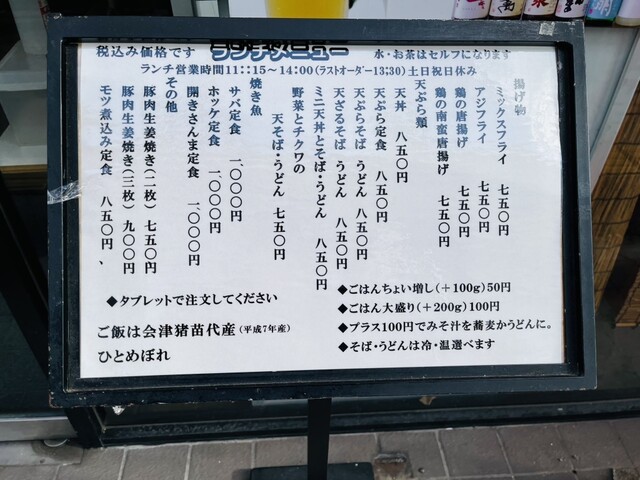 税込み価格です
ランチメニュー
水・お茶はセルフになります
ランチ営業時間11:15~14:00(ラストオーダー13:30)土日祝日休み
揚げ物
ミックスフライ 七五〇円
アジフライ 七五〇円
鶏の唐揚げ 七五〇円
鶏の南蛮唐揚げ 七五〇円
天ぷら類
天丼 八五〇円
天ぷら定食 八五〇円
天ぷらそば うどん 八五〇円
天ざるそば うどん 八五〇円
ミニ天丼とそば・うどん 八五〇円
野菜とチクワの
天そば・うどん 七五〇円
焼き魚
サバ定食 一〇〇〇円
ホッケ定食 一〇〇〇円
開きさんま定食 一〇〇〇円
その他
豚肉生姜焼き(二枚) 七五〇円
豚肉生姜焼き(三枚) 九〇〇円
モツ煮込み定食 八五〇円、
◆ごはんちょい増し(+100g)50円
◆ごはん大盛り(+200g)100円
◆プラス100円でみそ汁を蕎麦かうどんに。
◆そば・うどんは冷・温選べます
◆タブレットで注文してください
ご飯は会津猪苗代産(平成7年産)
ひとめぼれ